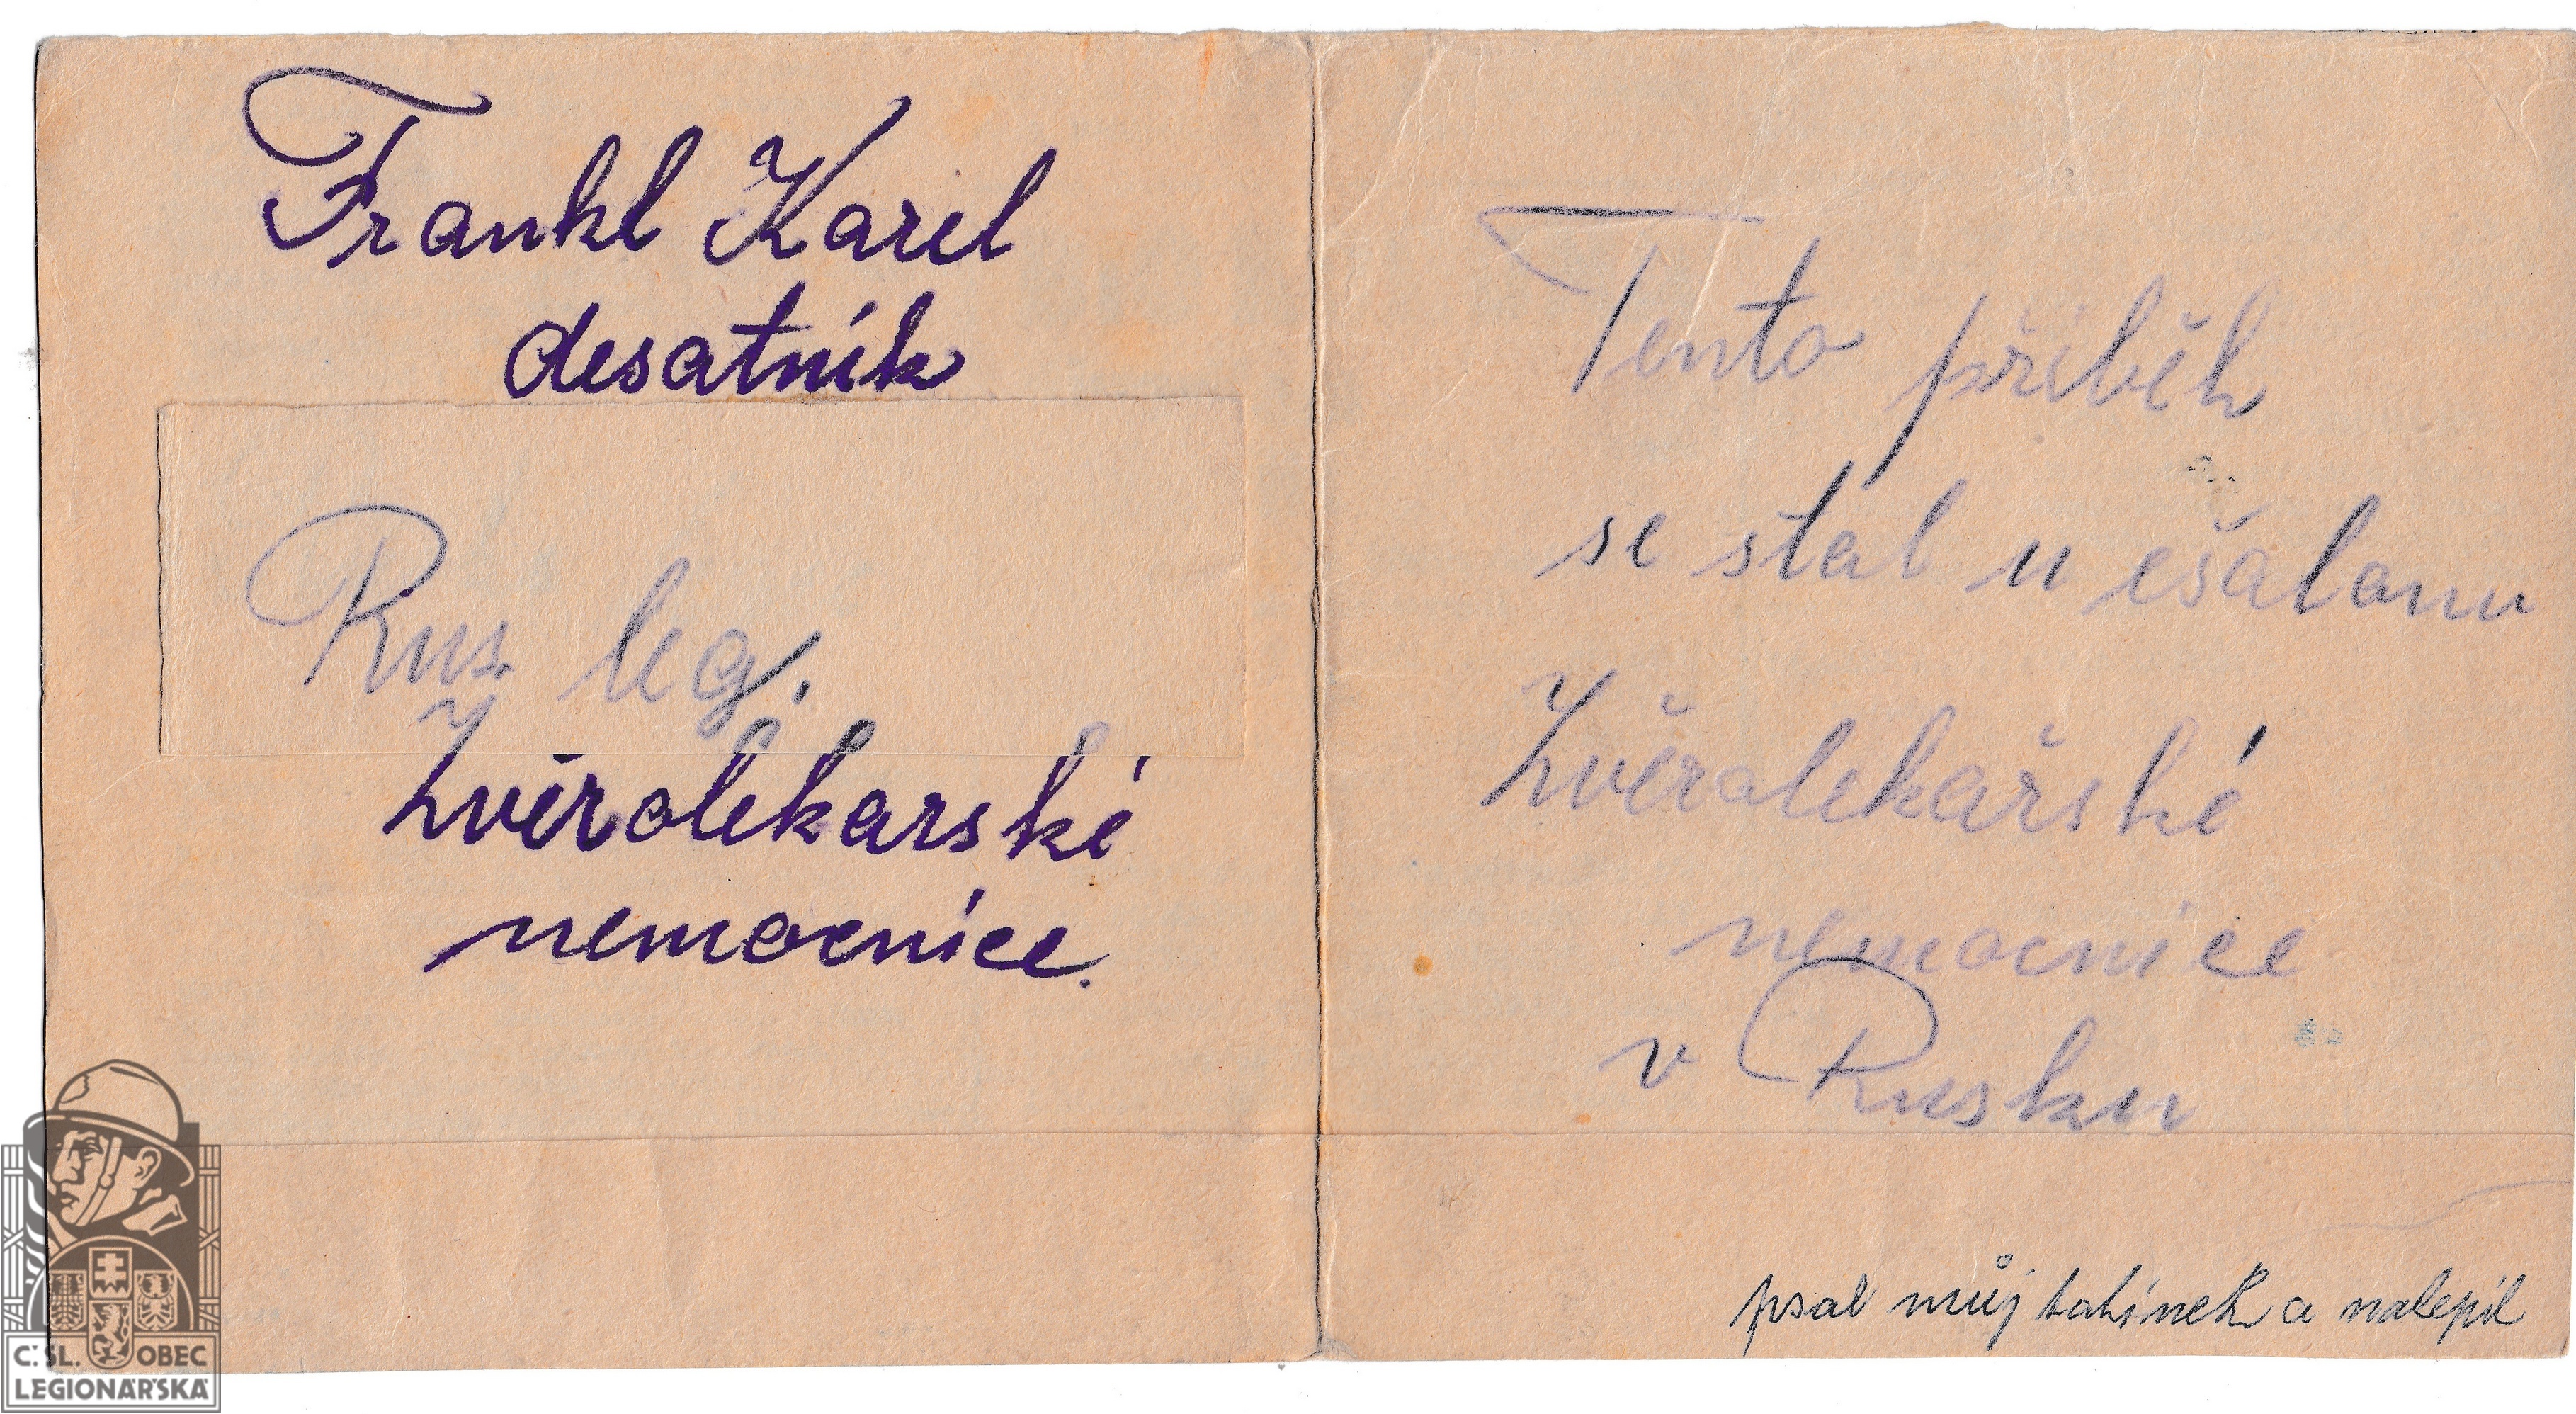 Frankl Karel
desatník
Rus. leg.
Zvěrolékarské
nemocnice.
Tento příběh
se stal u ešalonu
Zvěrolekařské
nemocnice
v Rusku
psal můj tatínek a nalepil
Č. SL. OBEC
LEGIONÁŘSKÁ